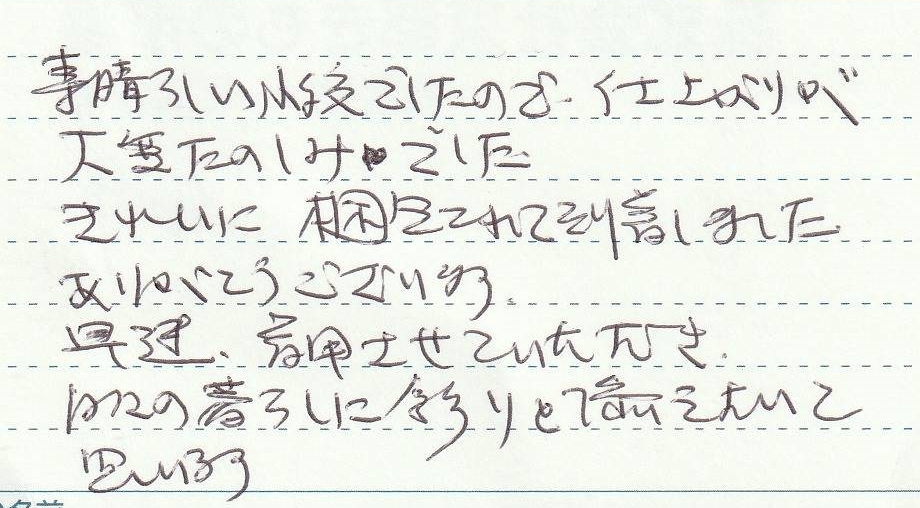 素晴らしい小紋でしたので、仕上がりが
大変たのしみでした
きれいに梱包されて到着しました
ありがとうございます。
早速、着用させていただき、
日々の暮らしに彩りを添えたいと
思います
名前